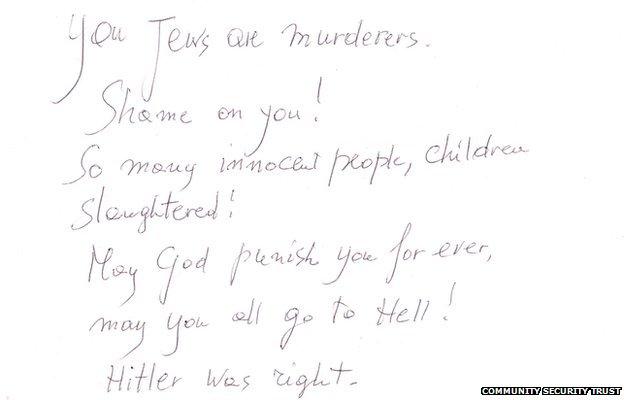 You Jews are murderers.
Shame on you!
So many innocent people, children
slaughtered!
May God punish you for ever,
may you all go to Hell!
Hitler was right.
COMMUNITY SECURITY TRUST